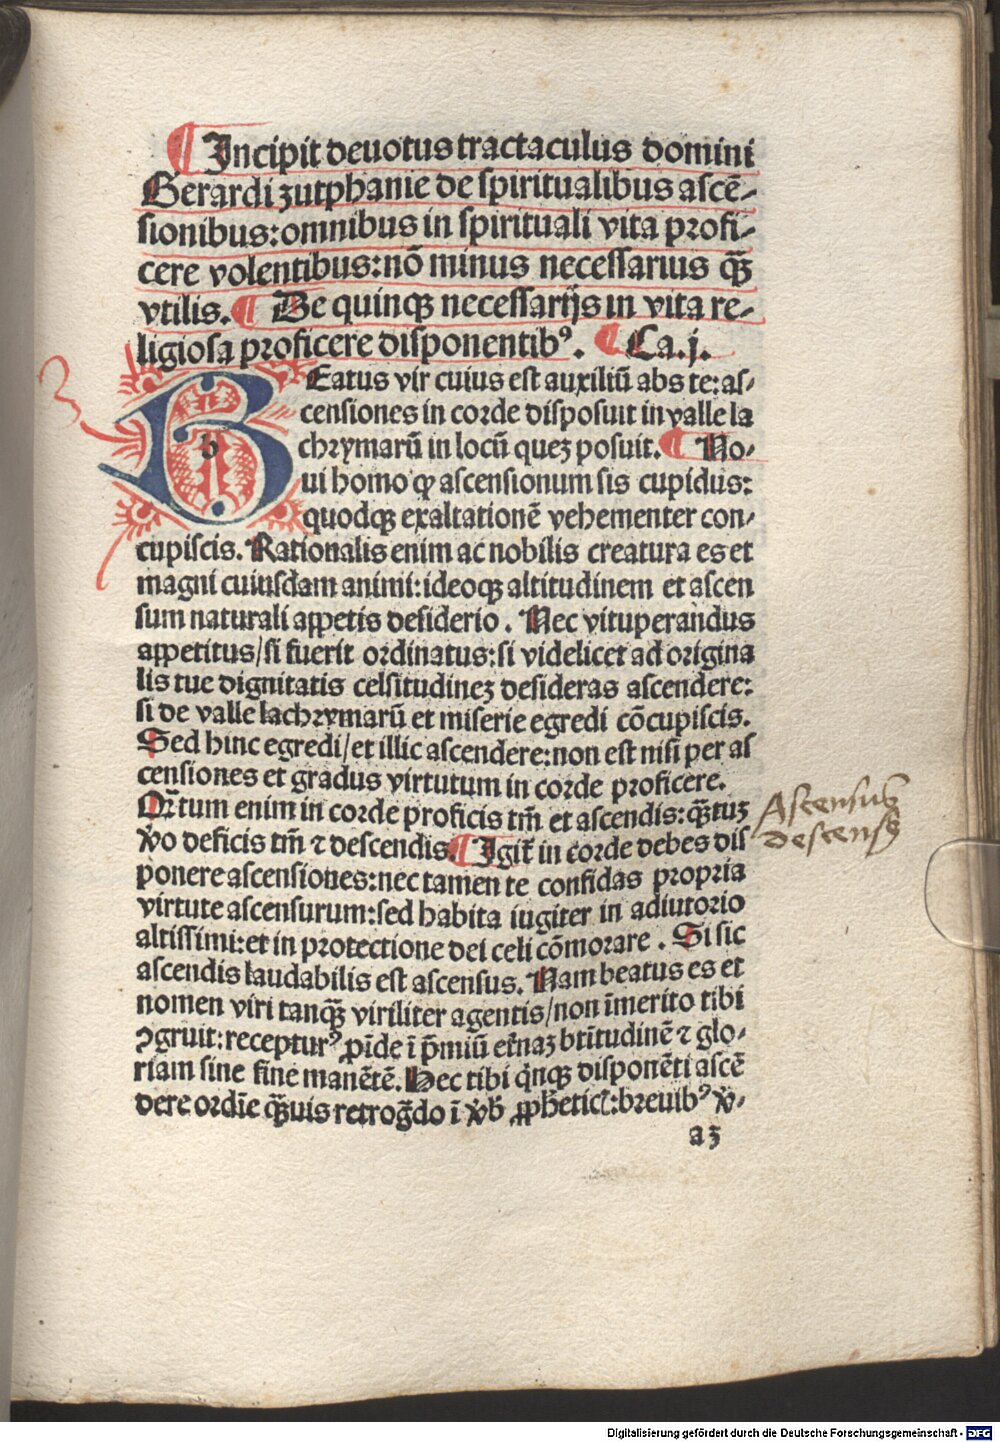 ¶ Incipit deuotus tractaculus domini
Gerardi zutphanie de spiritualibus ascē-
sionibus: omnibus in spirituali vita profi-
cere volentibus: nō minus necessarius qȝ̄
vtilis. ¶ De quinqȝ necessarijs in vita re-
ligiosa proficere disponentibꝰ. ¶ Ca. j.
BEatus vir cuius est auxiliū abs te: as-
censiones in corde disposuit in valle la
chrymarū in locū quez posuit. ¶ No-
ui homo ꝙ ascensionum sis cupidus:
quodqȝ exaltationē vehementer con-
cupiscis. Rationalis enim ac nobilis creatura es et
magni cuiusdam animi: ideoqȝ altitudinem et ascen
sum naturali appetis desiderio. Nec vituperandus
appetitus/ si fuerit ordinatus: si videlicet ad origina
lis tue dignitatis celsitudinez desideras ascendere:
si de valle lachrymarū et miserie egredi cōcupiscis.
Sed hinc egredi/ et illic ascendere: non est nisi per as
censiones et gradus virtutum in corde proficere.
Qr̄tum enim in corde proficis tm̄ et ascendis: qȝ̄tuȝ
ṽo deficis tm̄ ⁊ descendis. ¶ Igit̄ in corde debes dis
ponere ascensiones: nec tamen te confidas propria
virtute ascensurum: sed habita iugiter in adiutorio
altissimi: et in protectione dei celi cōmorare. Si sic
ascendis laudabilis est ascensus. Nam beatus es et
nomen viri tanqȝ̄ viriliter agentis/ non īmerito tibi
ꝯgruit: recepturꝰ ꝓīde ī p̄miū et̄naȝ btītudinē ⁊ glo-
riam sine fine manētē. Hec tibi qͥnqȝ disponēti ascē
dere ordīe qȝ̄uis retrog̃do ī ṽb̄ ꝓph̄eticꝭ: breuibꝰ ṽ-
a3
Ascensus
descensꝰ
b